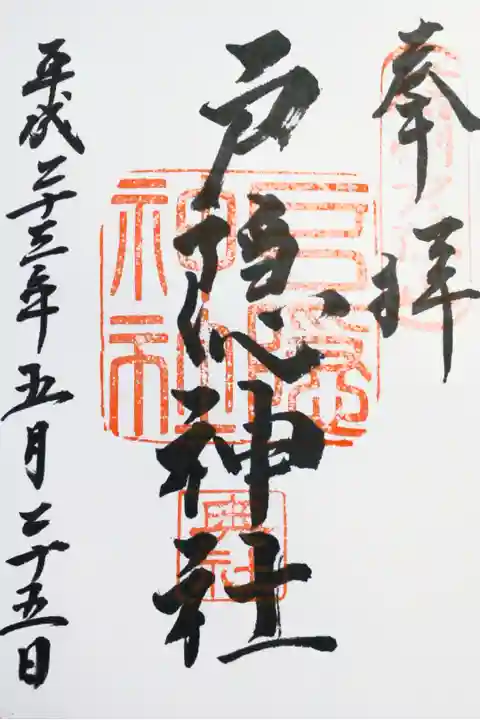 奉拝
戸隠神社
平成二十三年五月二十五日
戸隠神社
奥社